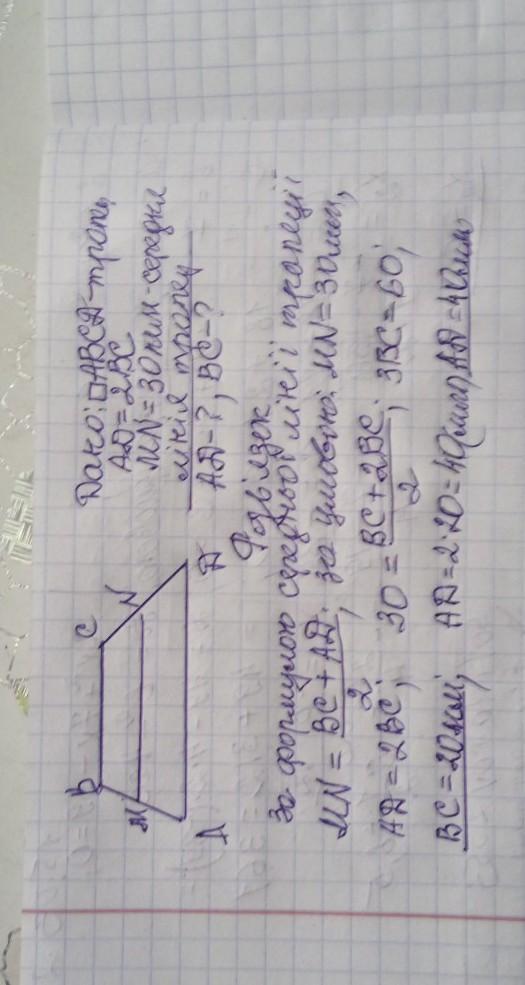 B C
M N
A D
Дано: □ABCD-трапец,
AD=2BC
MN=30мм-середня
лінія трапец
AD-?, BC-?
Розв'язок
За формулою середньої лінії трапеції
MN = (BC + AD)/2, за умовою: MN=30мм,
AD=2BC; 30 = (BC+2BC)/2; 3BC=60;
BC=20мм; AD=2·20=40(мм), AD=40мм.